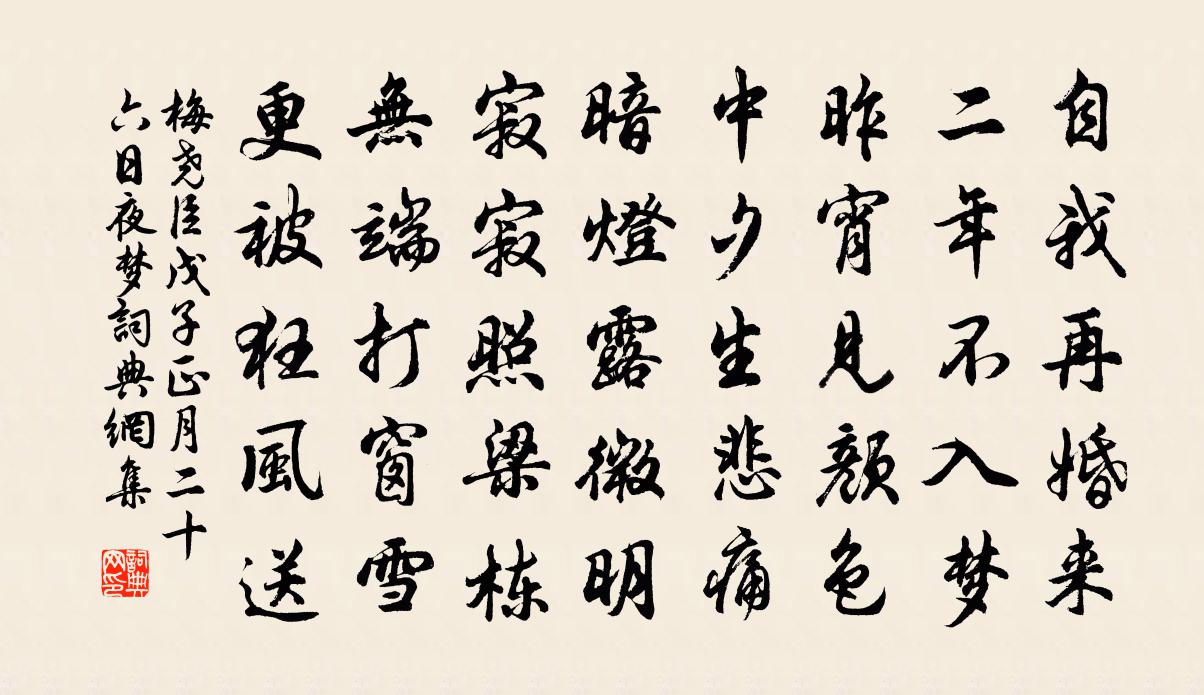 自我再婚来
二年不入梦
昨宵見顔色
中夕生悲痛
暗燈露微明
寂寂照梁栋
無端打窗雪
更被狂風送
梅尧臣戊子正月二十
六日夜梦詞典網集
詞典
网印